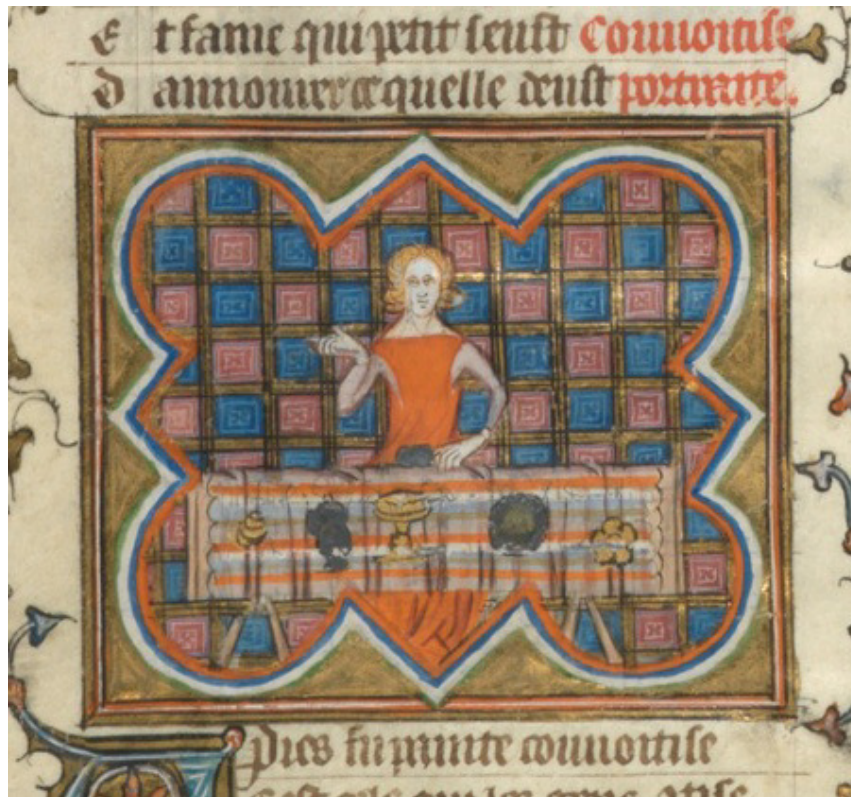 Et fame qui petit seust Couuoitise
D annouier ce quelle deust portraite.
Apres fu painte couuoitise